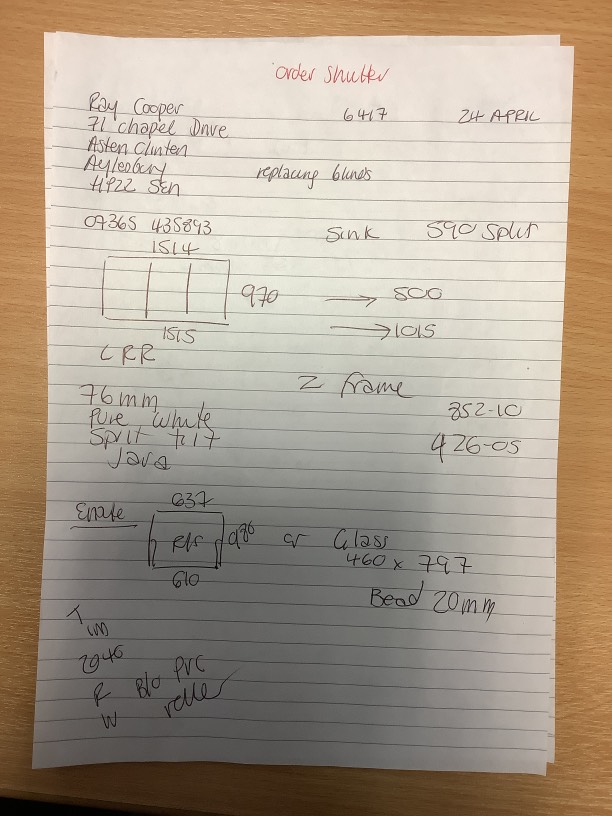 order shutter
Ray Cooper 6417 24 APRIL
71 chapel Drive
Asten Clinten
Aylesbury replacing blinds
HP22 5EN
07365 435893 Sink 590 split
1514
970 → 500
→ 1015
1515
LRR
Z frame
76mm 852-10
Pure white 426-05
Split tilt
Java
637
Ensuite R/F 986 or Glass
460 x 797
610
Bead 20mm
Tim
2046
R B/O PVC
W roller